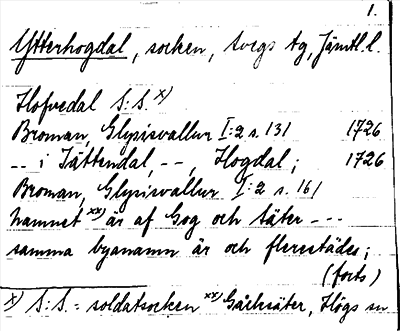 1.
Ytterhogdal, socken, Svegs tg, Jämtl. l.
Hofvedal S:S. x)
Broman, Glysisvallur I:2 s. 131 1726
-- i Jättendal, --, Hogdal; 1726
Broman, Glysisvallur I:2 s. 161
namnet xx) är af Gog och säter ---
samma byanamn är och flerestädes;
(forts)
x) S:S. = soldatsocken xx) Gåcksäter, Högs sn